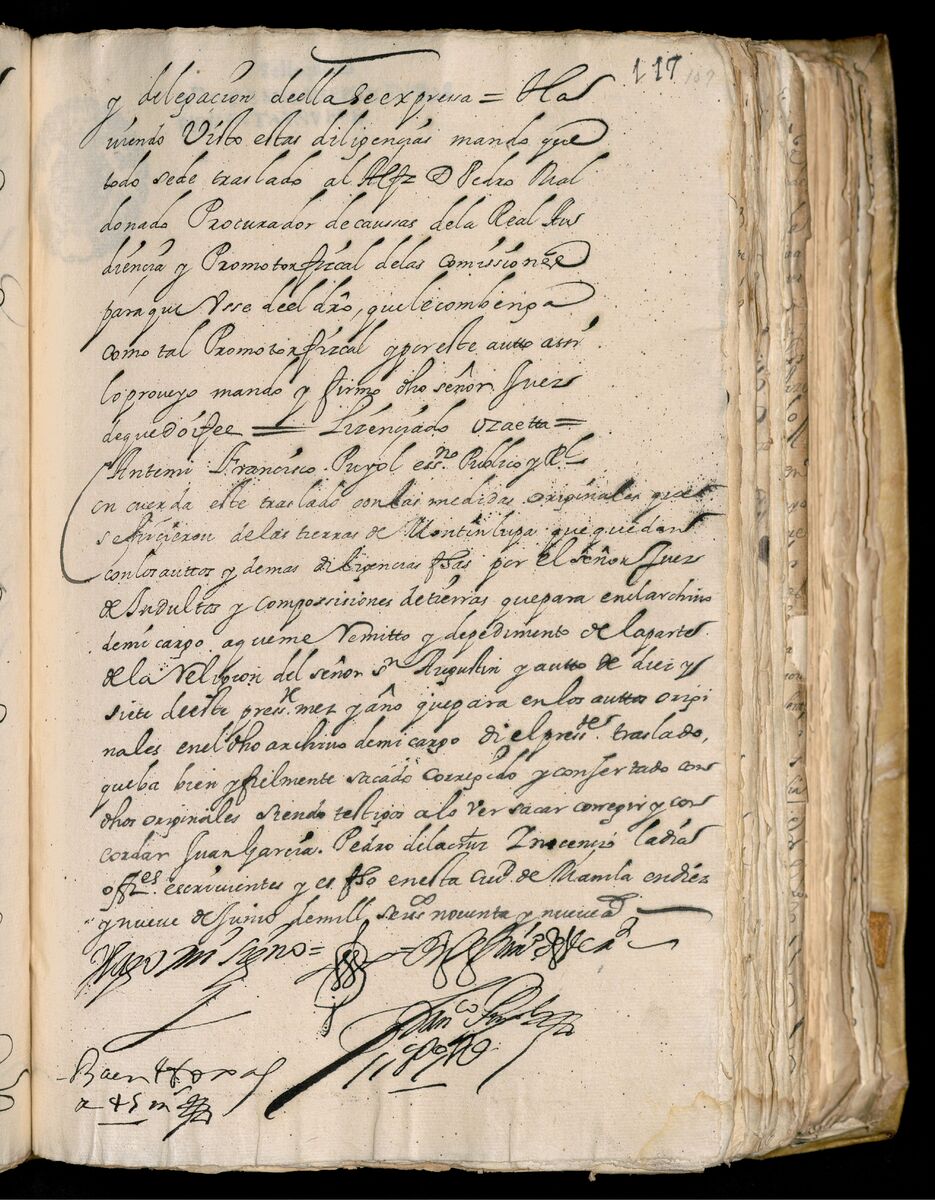 117
y delegacion deella se expressa = Ha
viendo Visto estas diligencias mando que
todo se de traslado al Alfz D Pedro Mal
donado Procurador de caussas dela Real Au
diencia y Promotor fizcal delas comissiones
para que Vsse de el dro, que le combenga
como tal Promotor fizcal y por este autto assi
lo proveyo mando y firmo dho señor Juez
de que doi fee = Lizenciado Vzaetta =
Antemi Francisco Puyol essno Publico y Rl
concuerda este traslado con las medidas originales que
se hizieron de las tierras de Montinlupa que quedan
con los auttos y demas diligencias fhas por el señor Juez
de Indultos y compossisiones de tierras que para en el archivo
de mi cargo aque me Remitto y de pedimento de la parte
de la Religion del señor Sn Augustin y autto de diez y
siete de este presste mez y año que para en los auttos origi
nales en el dho archivo de mi cargo di el presste traslado,
que ba bien y fielmente sacado corregido y consertado con
dhos originales siendo testigos a lo ver sacar corregir y con
cordar Juan Garcia. Pedro dela Cruz Inocencio
offes escrivientes y es fho en esta Ciud de Manila en diez
y nueve de Junio de mill seiscos noventa y nueve as
Hago mi signo =
Franco Puyol